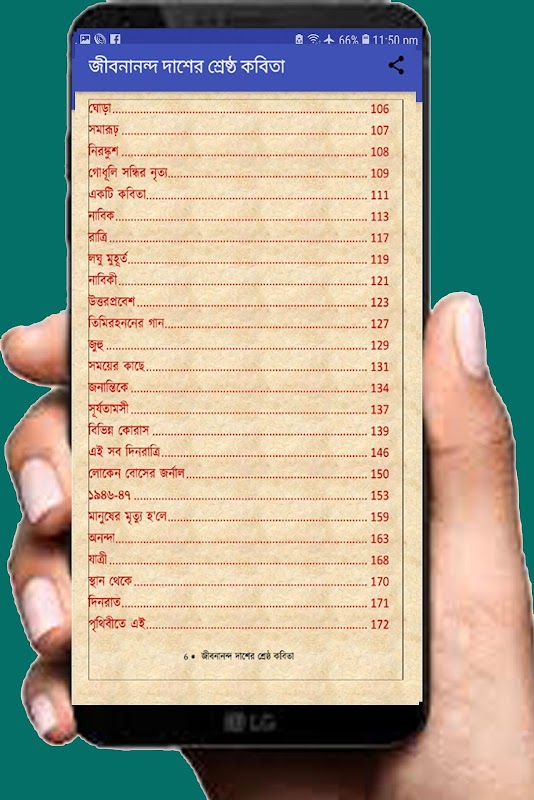 66% 11:50 pm
জীবনানন্দ দাশের শ্রেষ্ঠ কবিতা
ঘোড়া 106
সমারূঢ় 107
নিরঙ্কুশ 108
গোধূলি সন্ধির নৃত্য 109
একটি কবিতা 111
নাবিক 113
রাত্রি 117
লঘু মুহূর্ত 119
নাবিকী 121
উত্তরপ্রবেশ 123
তিমিরহননের গান 127
জুহু 129
সময়ের কাছে 131
জনান্তিকে 134
সূর্যতামসী 137
বিভিন্ন কোরাস 139
এই সব দিনরাত্রি 146
লোকেন বোসের জর্নাল 150
১৯৪৬-৪৭ 153
মানুষের মৃত্যু হ'লে 159
অনন্দা 163
যাত্রী 168
স্থান থেকে 170
দিনরাত 171
পৃথিবীতে এই 172
6 • জীবনানন্দ দাশের শ্রেষ্ঠ কবিতা
LG